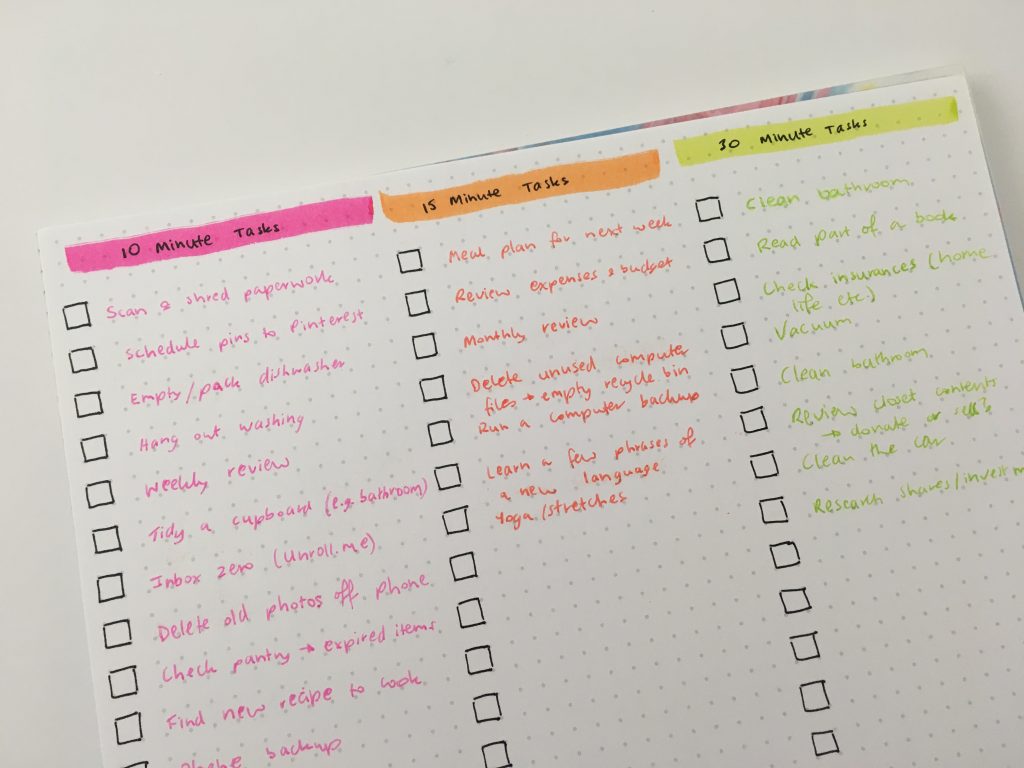 10 Minute Tasks
Scan & shred paperwork
Schedule pins to Pinterest
Empty/pack dishwasher
Hang out washing
Weekly review
Tidy a cupboard (e.g. bathroom)
Inbox zero (Unroll.me)
Delete old photos off phone
Check pantry → expired items
Find new recipe to cook
Phone backup
15 Minute Tasks
Meal plan for next week
Review expenses & budget
Monthly review
Delete unused computer
files → empty recycle bin
Run a computer backup
Learn a few phrases of
a new language
Yoga/stretches
30 Minute Tasks
Clean bathroom
Read part of a book
Check insurances (home
life etc.)
Vacuum
Clean bathroom
Review closet contents
→ donate or sell?
Clean the car
Research shares/